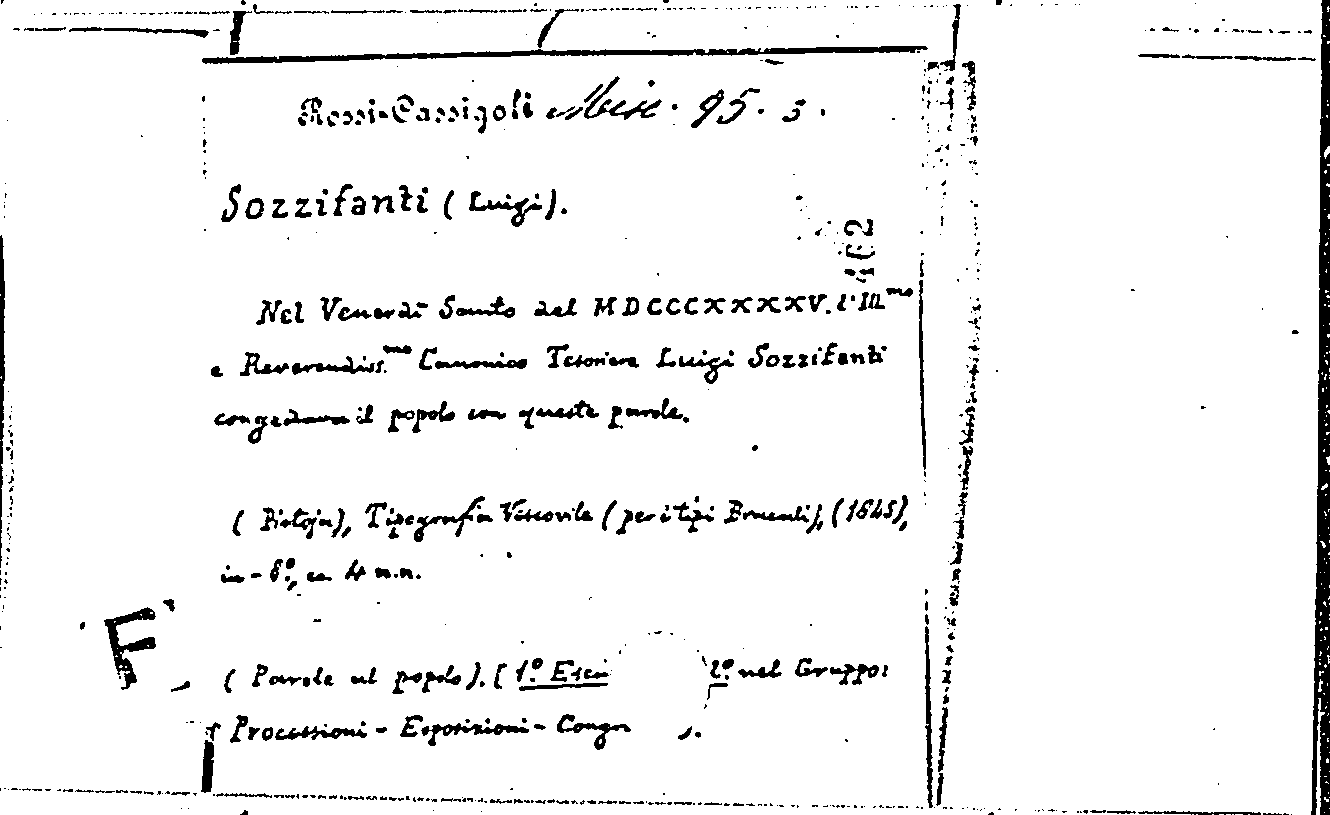 Rossi-Cassigoli Misc. 95. 3.
Sozzifanti (Luigi).
Nel Venerdì Santo del MDCCCXXXXV. l'Ill.mo
e Reverendiss.mo Canonico Tesoriere Luigi Sozzifanti
congedava il popolo con queste parole.
(Pistoja), Tipografia Vescovile (per i tipi Bracali), (1845),
in-8º, cc. 4 n.n.
(Parole al popolo). [1º Esem 2º nel Gruppo:
Processioni - Esposizioni - Congr
F